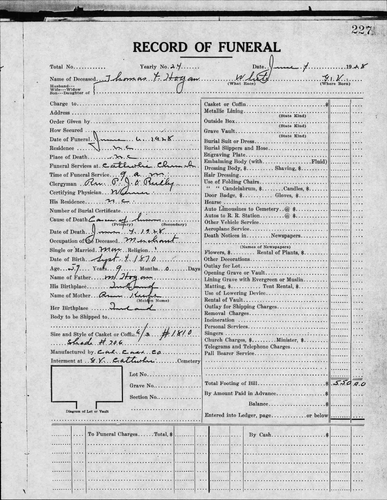 227
RECORD OF FUNERAL
Total No. Yearly No. 24 Date, June 4 1928
Name of Deceased Thomas F. Hogan White G.V.
Husband— Wife—Widow Son—Daughter of (What Race) (Where Born)
Charge to
Address
Order Given by
How Secured
Date of Funeral June 6 1928
Residence N.C.
Place of Death N.C.
Funeral Services at Catholic Church
Time of Funeral Service 9 a.m.
Clergyman Rev. P.J. O'Reilly
Certifying Physician
His Residence N.C.
Number of Burial Certificate
Cause of Death
(Primary) (Secondary)
Date of Death June 4, 1928
Occupation of Deceased Merchant
Single or Married Mar. Religion
Date of Birth Sept. 4 1870
Aged 57 Years 9 Months 0 Days
Name of Father M. Hogan
His Birthplace Ireland
Name of Mother Ann
(Maiden Name)
Her Birthplace Ireland
Body to be Shipped to
Size and Style of Casket or Coffin 6/3 #1810
Shade #706
Manufactured by Cal. Cask. Co
Interment at G.V. Catholic Cemetery
Lot No.
Grave No.
Section No.
Diagram of Lot or Vault
Casket or Coffin $
Metallic Lining
(State Kind)
Outside Box
(State Kind)
Grave Vault
(State Kind)
Burial Suit or Dress
Burial Slippers and Hose
Engraving Plate
Embalming Body (with Fluid)
Dressing Body, $ Shaving, $
Hair Dressing
Use of Folding Chairs
" " Candelabrum, $ Candles, $
Door Badge, $ Gloves, $
Hearse
Auto Limousines to Cemetery @ $
Autos to R. R. Station @ $
Other Vehicle Service
Aeroplane Service
Death Notices in Newspapers
(Names of Newspapers)
Flowers, $ Rental of Plants, $
Other Decorations
Outlay for Lot
Opening Grave or Vault
Lining Grave with Evergreen or Muslin
Matting, $ Tent Rental, $
Use of Lowering Device
Rental of Vault
Outlay for Shipping Charges
Removal Charges
Incineration
Personal Services
Singers
Church Charges, $ Minister, $
Telegrams and Telephone Charges
Pall Bearer Service
Total Footing of Bill $ 550 00
By Amount Paid in Advance
Balance $
Entered into Ledger, page or below
To Funeral Charges, Total, $ By Cash $